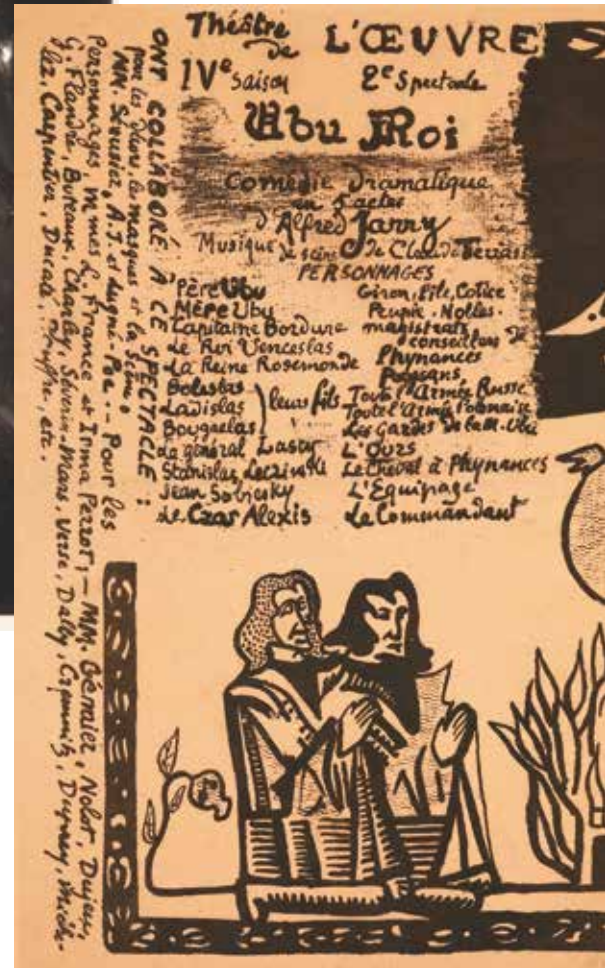 Théâtre
de L'ŒUVRE
IVe saison 2e Spectacle
Ubu Roi
Comédie Dramatique
en 5 actes
d'Alfred Jarry
Musique de scène de Claude Terrass
PERSONNAGES
Père Ubu
Mère Ubu
Capitaine Bordure
Le Roi Venceslas
La Reine Rosemonde
Boleslas
Ladislas
Bougrelas
leurs fils
Le général Lascy
Stanislas Leczinski
Jean Sobiesky
Le Czar Alexis
Giron, Pile, Cotice
Peuple. Nobles.
magistrats
conseillers de
Phynances
Paysans
Toute l'Armée Russe
Toute l'Armée Polonaise
Les Gardes de la M. Ubu
L'Ours
Le Cheval à Phynances
L'Equipage
Le Commandant
ONT COLLABORÉ A CE SPECTACLE :
pour les les masques et la Scène :
MM. A.J. et Lugné-Poe. — Pour les
Personnages, Mmes L. France et Irma Perrot, — MM. Gémier, Nolot, Dujeu,
G. Flandre, Buteaux, Charley, Séverin-Mars, Verse, Dally, Michelez,
Carpentier, Ducaté, etc.